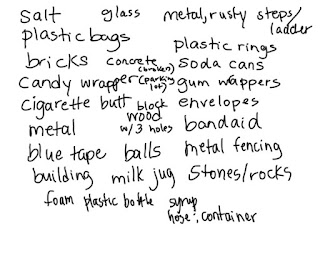 salt glass metal, rusty steps/
ladder
plastic bags plastic rings
bricks concrete (broken) soda cans
(parking lot)
candy wrapper gum wappers
cigarette butt block envelopes
wood
metal w/ 3 holes bandaid
blue tape balls metal fencing
building milk jug stones/rocks
foam plastic bottle syrup
hose, container